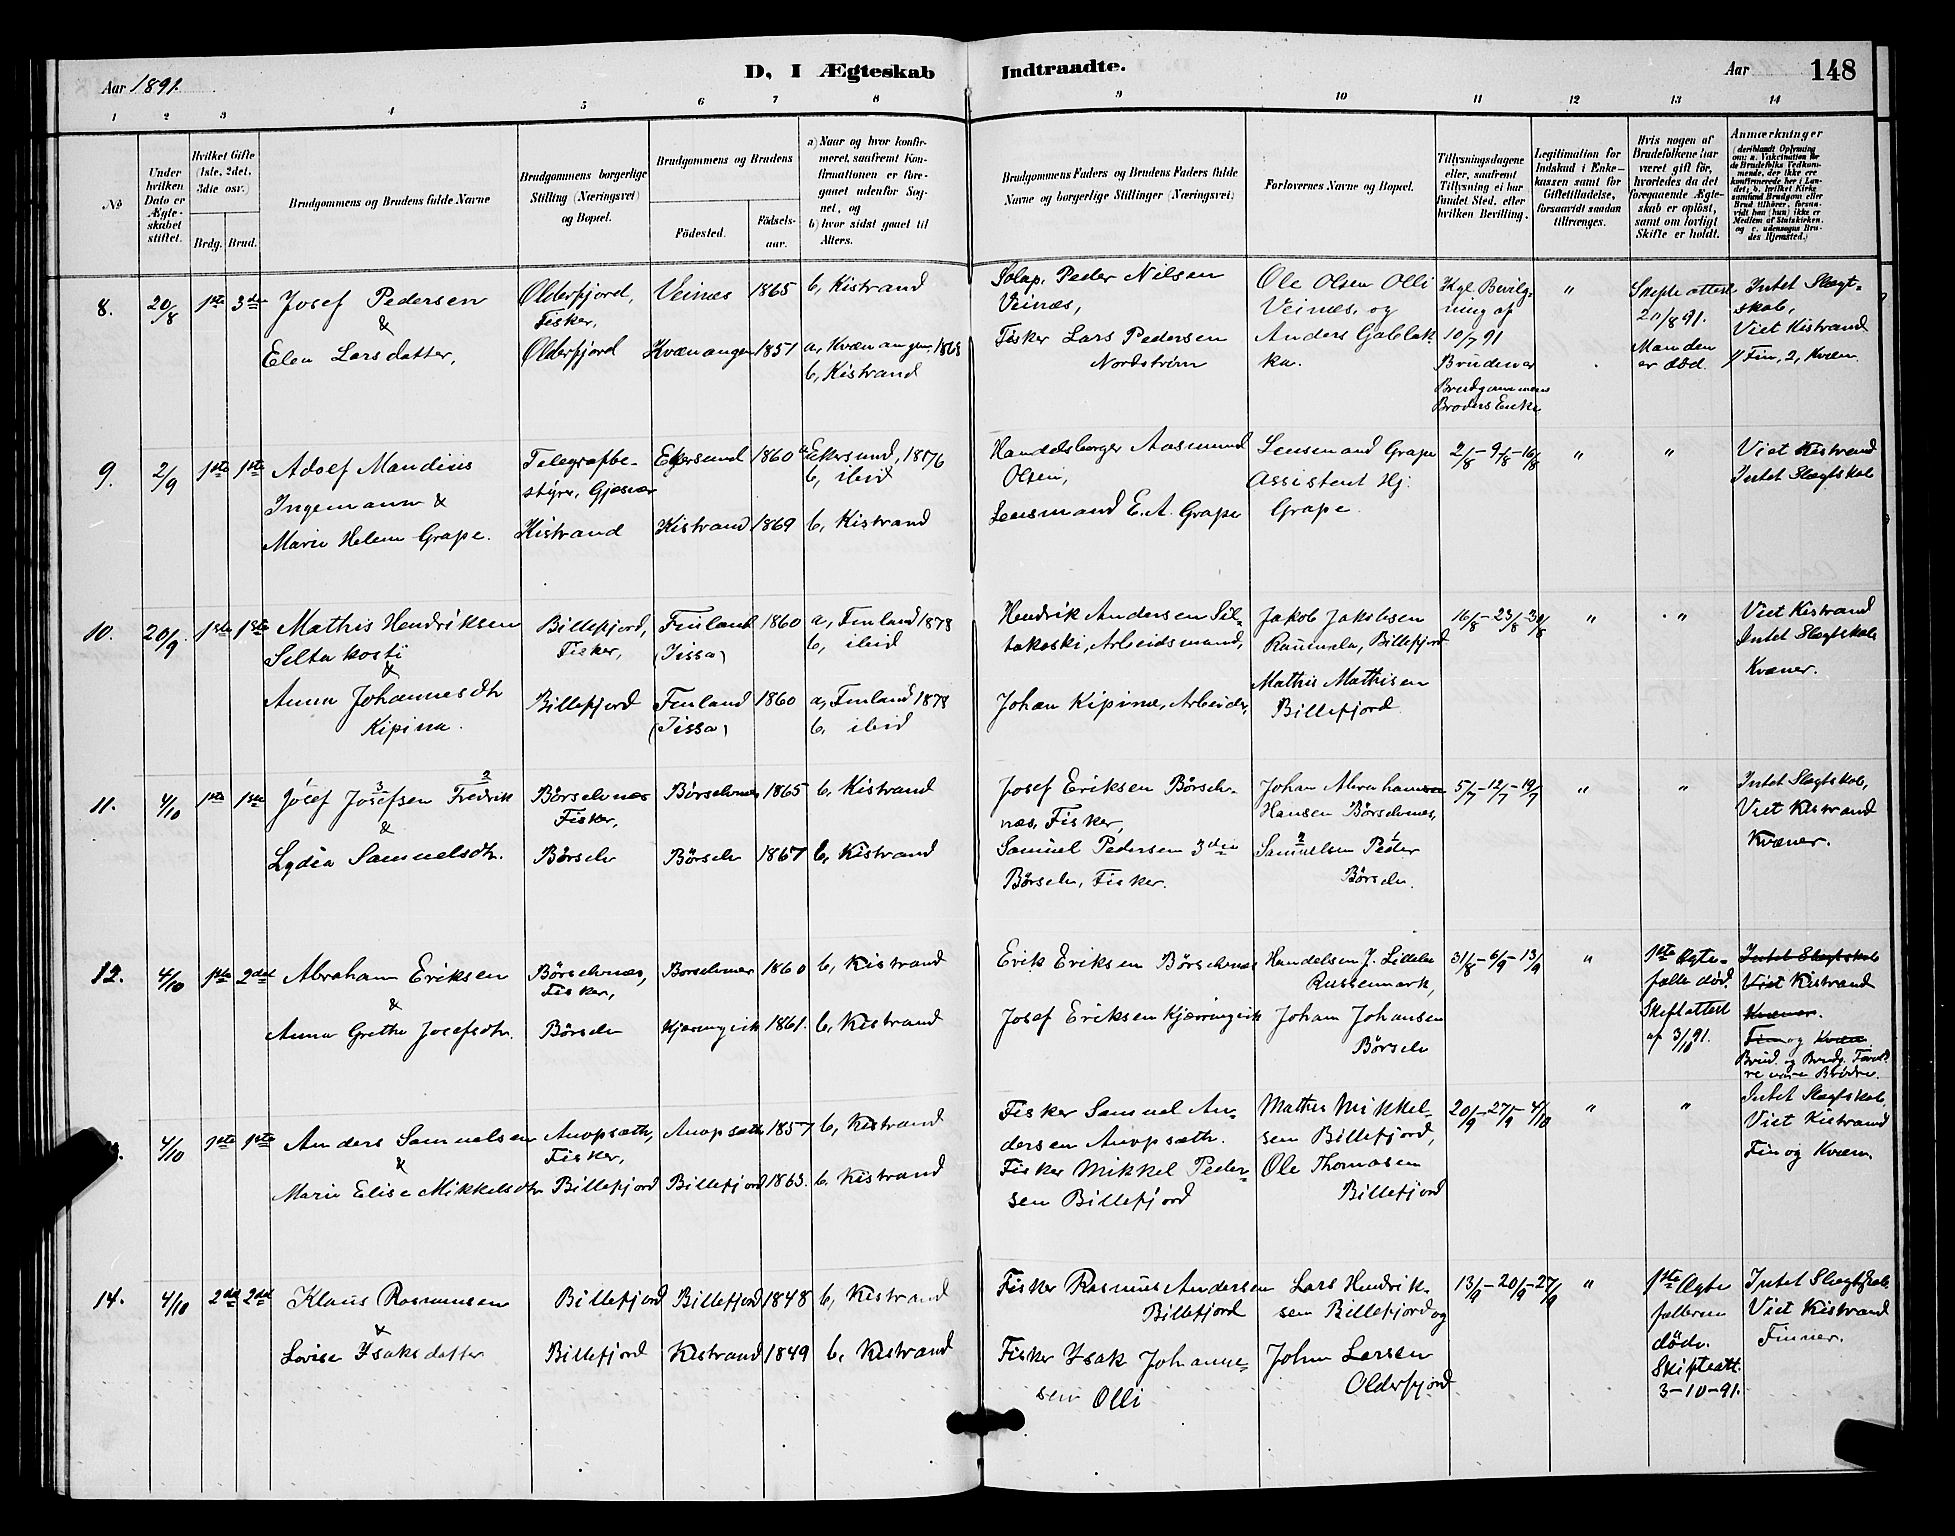 Aar 1891.
D, I Ægteskab Indtraadte.
Aar 148
1 2 3 4 5 6 7 8 9 10 11 12 13 14
No
Under hvilken Dato er Ægteskabet stiftet.
Hvilket Gifte (1ste, 2det, 3die osv.)
Brdg. Brud.
Brudgommens og Brudens fulde Navne
Brudgommens borgerlige Stilling (Næringsvei) og Bopæl.
Brudgommens og Brudens
Fødested.
Fødselsaar.
a) Naar og hvor konfirmeret, saafremt Konfirmationen er foregaaet udenfor Sognet, og
b) hvor sidst gaaet til Alters.
Brudgommens Faders og Brudens Faders fulde Navne og borgerlige Stillinger (Næringsvei)
Forlovernes Navne og Bopæl.
Tillysningsdagene eller, saafremt Tillysning ei har fundet Sted, efter hvilken Bevilling.
Legitimation for Indskud i Enkekassen samt for Giftetilladelse, forsaavidt saadan tiltrænges.
Hvis nogen af Brudefolkene har været gift før, hvorledes da det foregaaende Ægteskab er opløst, samt om lovligt Skifte er holdt.
Anmærkninger (deriblandt Oplysning om: a. Vakcination for de Brudefolks Vedkommende, der ikke ere konfirmerede her i Landet; b. hvilket Kirkesamfund Brudgom eller Brud tilhører, forsaavidt han (hun) ikke er Medlem af Statskirken, og c. udensogns Brudes Hjemsted.)
8. 20/8 1ste 3die Josef Pedersen
&
Elen Larsdatter,
Olderfjord, Fisker,
Olderfjord
Veines 1865 b, Kistrand
Kvænangen 1857 a, Kvænangen, 1868
b, Kistrand
Peder Nilsen
Veines,
Fisker Lars Pedersen
Nordstrøm
Ole Olsen Olli
Veines, og
Anders Gablak
ka.
Kgl. Bevilg-
ning af
10/7 91
Bruden er
Brudgommens
Broders Enke
"
Skifteattest
20/8 91.
Manden
er död.
Intet Slægt-
skab,
Viet Kistrand
1 Fin, 2, Kvæn.
9. 2/9 1ste 1ste Adolf Mandius
Ingemann &
Marie Helene Grape.
Telegrafbe-
styrer, Gjesvær
Kistrand
Ekersund 1860 a, Ekersund, 1876
b, ibid
Kistrand 1869 b, Kistrand
Handelsborger Aasmund
Olsen,
Lensmand E. A. Grape
Lensmand Grape
Assistent Hj.
Grape.
2/8 - 9/8 - 16/8
" "
Viet Kistrand
Intet Slægtskab
10. 20/9 1ste 1ste Mathis Hendriksen
Siltakoski
&
Anna Johannesdtr
Kipina.
Billefjord,
Fisker,
Billefjord
Finland 1860 a, Finland 1878
(Tissa) b, ibid
Finland 1860 a, Finland 1878
(Tissa) b, ibid
Hendrik Andersen Sil-
takoski, Arbeidsmand,
Johan Kipina, Arbeider,
Jakob Jakobsen
Raumala, Billefjord
Mathis Mathisen
Billefjord
16/8 - 23/8 - 30/8
" "
Viet Kistrand
Intet Slægtskab
Kvæner.
11. 4/10 1ste 1ste Josef Josefsen Fredrik
3 2
&
Lydia Samuelsdtr.
Børselvnes
Fisker,
Børselv
Børselvnes 1865 b, Kistrand
Børselv 1867 b, Kistrand
Josef Eriksen Børselv-
nes, Fisker,
Samuel Pedersen 3die
Børselv, Fisker.
Johan Abraham
Hansen Børselvnes,
2 1
Samuelsen Peder
Børselv.
5/7 - 12/7 - 19/7
" "
Intet Slægtskab,
Viet Kistrand
Kvæner.
12. 4/10 1ste 2det Abraham Eriksen
&
Anna Grethe Josefsdtr.
Børselvnes,
Fisker,
Børselv
Børselvnes 1860 b, Kistrand
Kjærringvik 1861. b, Kistrand
Erik Eriksen Børselvnes
Josef Eriksen Kjærringvik
Handelsm J. Lilleba
Russemark,
Johan Johansen
Børselv
31/8 - 6/9 - 13/9
"
1ste Ægte-
fælle död.
Skifteattest
af 3/10 91.
Intet Slægtskab
Viet Kistrand
Kvæner.
Fin og Kvæn.
Brud. og Brudg. Fæd-
re vare Brödre.
4/10 1ste 1ste Anders Samuelsen
&
Marie Elise Mikkelsdtr
Auopsæth,
Fisker,
Billefjord
Auopsæth 1857 b, Kistrand
Billefjord 1863. b, Kistrand
Fisker Samuel An-
dersen Auopsæth.
Fisker Mikkel Peder-
sen Billefjord
Mathis Mikkel-
sen Billefjord,
Ole Thomasen
Billefjord
20/9 - 27/9 - 4/10
" "
Intet Slægtskab,
Viet Kistrand
Fin og Kvæn.
14. 4/10 2det 2det Klaus Rasmusen
&
Lovise Isaksdatter
Billefjord
Billefjord
Billefjord 1848 b, Kistrand
Kistrand 1849 b, Kistrand
Fisker Rasmus Andersen
Billefjord
Fisker Isak Johanne-
sen Olli
Lars Hendrik-
sen Billefjord og
John Larsen
Olderfjord
13/9 - 20/9 - 27/9
"
1ste Ægte
fællerne
döde.
Skifteatt.
3-10-91.
Intet Slægtskab
Viet Kistrand
Finner.